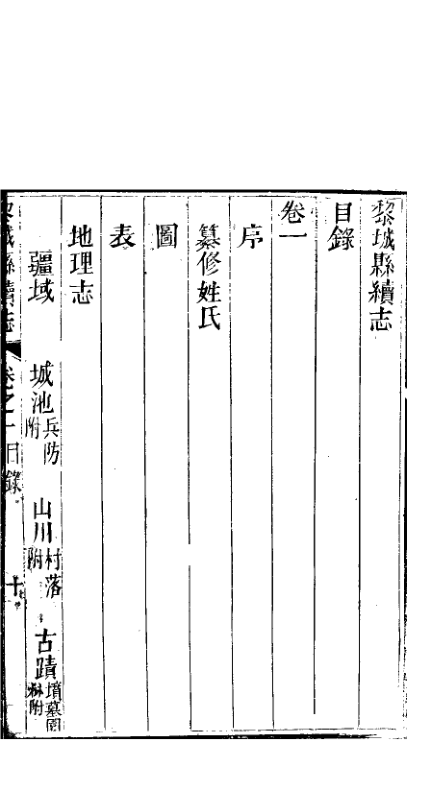 黎城縣續志
目錄
卷一
序
纂修姓氏
圖
表
地理志
疆域　城池兵防附　山川村落附　古蹟墳墓園林附
黎城縣續志　卷之一目錄　十